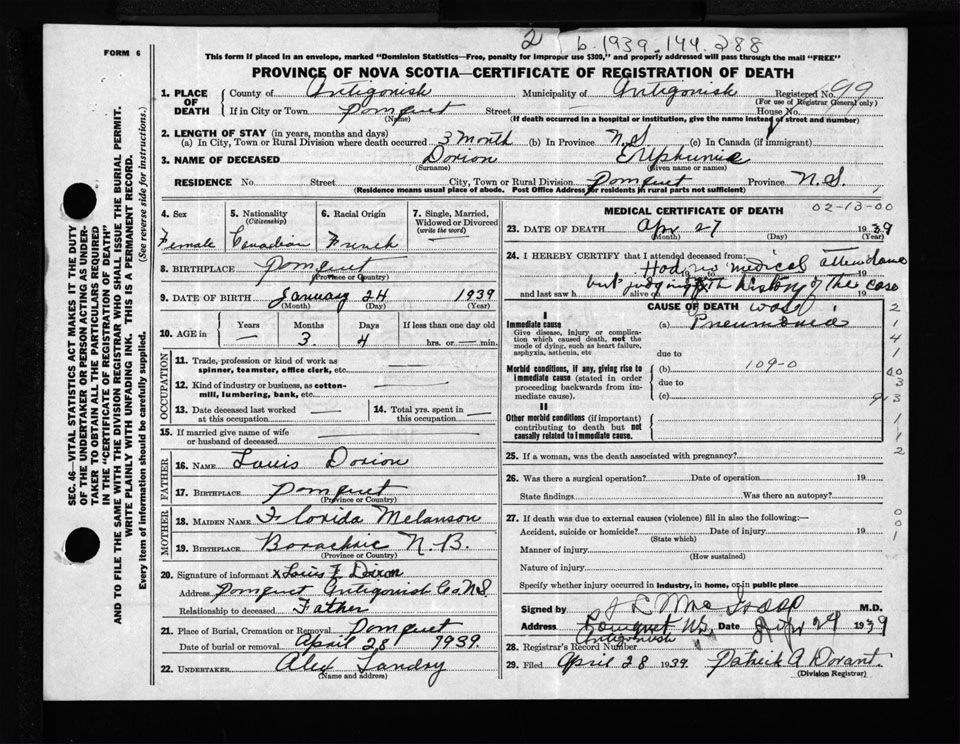 2 b. 1939. 144. 288
FORM 6
This form if placed in an envelope, marked "Dominion Statistics—Free, penalty for improper use $300," and properly addressed will pass through the mail "FREE"
PROVINCE OF NOVA SCOTIA—CERTIFICATE OF REGISTRATION OF DEATH
SEC. 46—VITAL STATISTICS ACT MAKES IT THE DUTY
OF THE UNDERTAKER OR PERSON ACTING AS UNDER-
TAKER TO OBTAIN ALL THE PARTICULARS REQUIRED
IN THE "CERTIFICATE OF REGISTRATION OF DEATH"
AND TO FILE THE SAME WITH THE DIVISION REGISTRAR WHO SHALL ISSUE THE BURIAL PERMIT.
WRITE PLAINLY WITH UNFADING INK. THIS IS A PERMANENT RECORD.
Every item of information should be carefully supplied. (See reverse side for instructions.)
1. PLACE OF DEATH County of Antigonish Municipality of Antigonish Registered No. 99
(For use of Registrar General only)
If in City or Town Pomquet Street — House No.
(Name) (If death occurred in a hospital or institution, give the name instead of street and number)
2. LENGTH OF STAY (in years, months and days)
(a) In City, Town or Rural Division where death occurred 3 month (b) In Province N.S. (c) In Canada (if immigrant)
3. NAME OF DECEASED Dorion
(Surname) (Given name or names)
RESIDENCE No. Street City, Town or Rural Division Pomquet Province N.S.
(Residence means usual place of abode. Post Office Address for residents in rural parts not sufficient)
4. Sex 5. Nationality (Citizenship) 6. Racial Origin 7. Single, Married, Widowed or Divorced (write the word)
Female Canadian French —
8. BIRTHPLACE Pomquet
(Province or Country)
9. DATE OF BIRTH January 24 1939
(Month) (Day) (Year)
10. AGE in Years Months Days If less than one day
— 3 4 hrs. or — min.
OCCUPATION
11. Trade, profession or kind of work as spinner, teamster, office clerk, etc. —
12. Kind of industry or business, as cotton-mill, lumbering, bank, etc. —
13. Date deceased last worked at this occupation — 14. Total yrs. spent in this occupation —
15. If married give name of wife or husband of deceased —
FATHER
16. NAME Louis Dorion
17. BIRTHPLACE Pomquet
(Province or Country)
MOTHER
18. MAIDEN NAME Florida Melanson
19. BIRTHPLACE N.B.
(Province or Country)
20. Signature of informant x Louis F Dorion
Address Pomquet Antigonish Co N.S.
Relationship to deceased Father
21. Place of Burial, Cremation or Removal Pomquet
Date of burial or removal April 28 1939.
22. UNDERTAKER Alex Landry
(Name and address)
MEDICAL CERTIFICATE OF DEATH 02-13-00
23. DATE OF DEATH Apr 27 1939
(Month) (Day) (Year)
24. I HEREBY CERTIFY that I attended deceased from:
Had no medical attendance
and last saw h alive on
but judging from the history of the case
CAUSE OF DEATH was
I
Immediate cause (a) Pneumonia
Give disease, injury or complication which caused death, not the mode of dying, such as heart failure, asphyxia, asthenia, etc
due to
Morbid conditions, if any, giving rise to immediate cause (stated in order proceeding backwards from immediate cause).
(b) 109-0
due to
(c)
II
Other morbid conditions (if important) contributing to death but not causally related to immediate cause.
25. If a woman, was the death associated with pregnancy?
26. Was there a surgical operation? Date of operation 19
State findings Was there an autopsy?
27. If death was due to external causes (violence) fill in also the following:—
Accident, suicide or homicide? Date of injury 19
(State which)
Manner of injury
(How sustained)
Nature of injury
Specify whether injury occurred in industry, in home, or in public place
Signed by M.D.
Address Pomquet N.S. Date Apr 29 1939
Antigonish
28. Registrar's Record Number
29. Filed April 28 1939. Patrick A Dorant.
(Division Registrar)